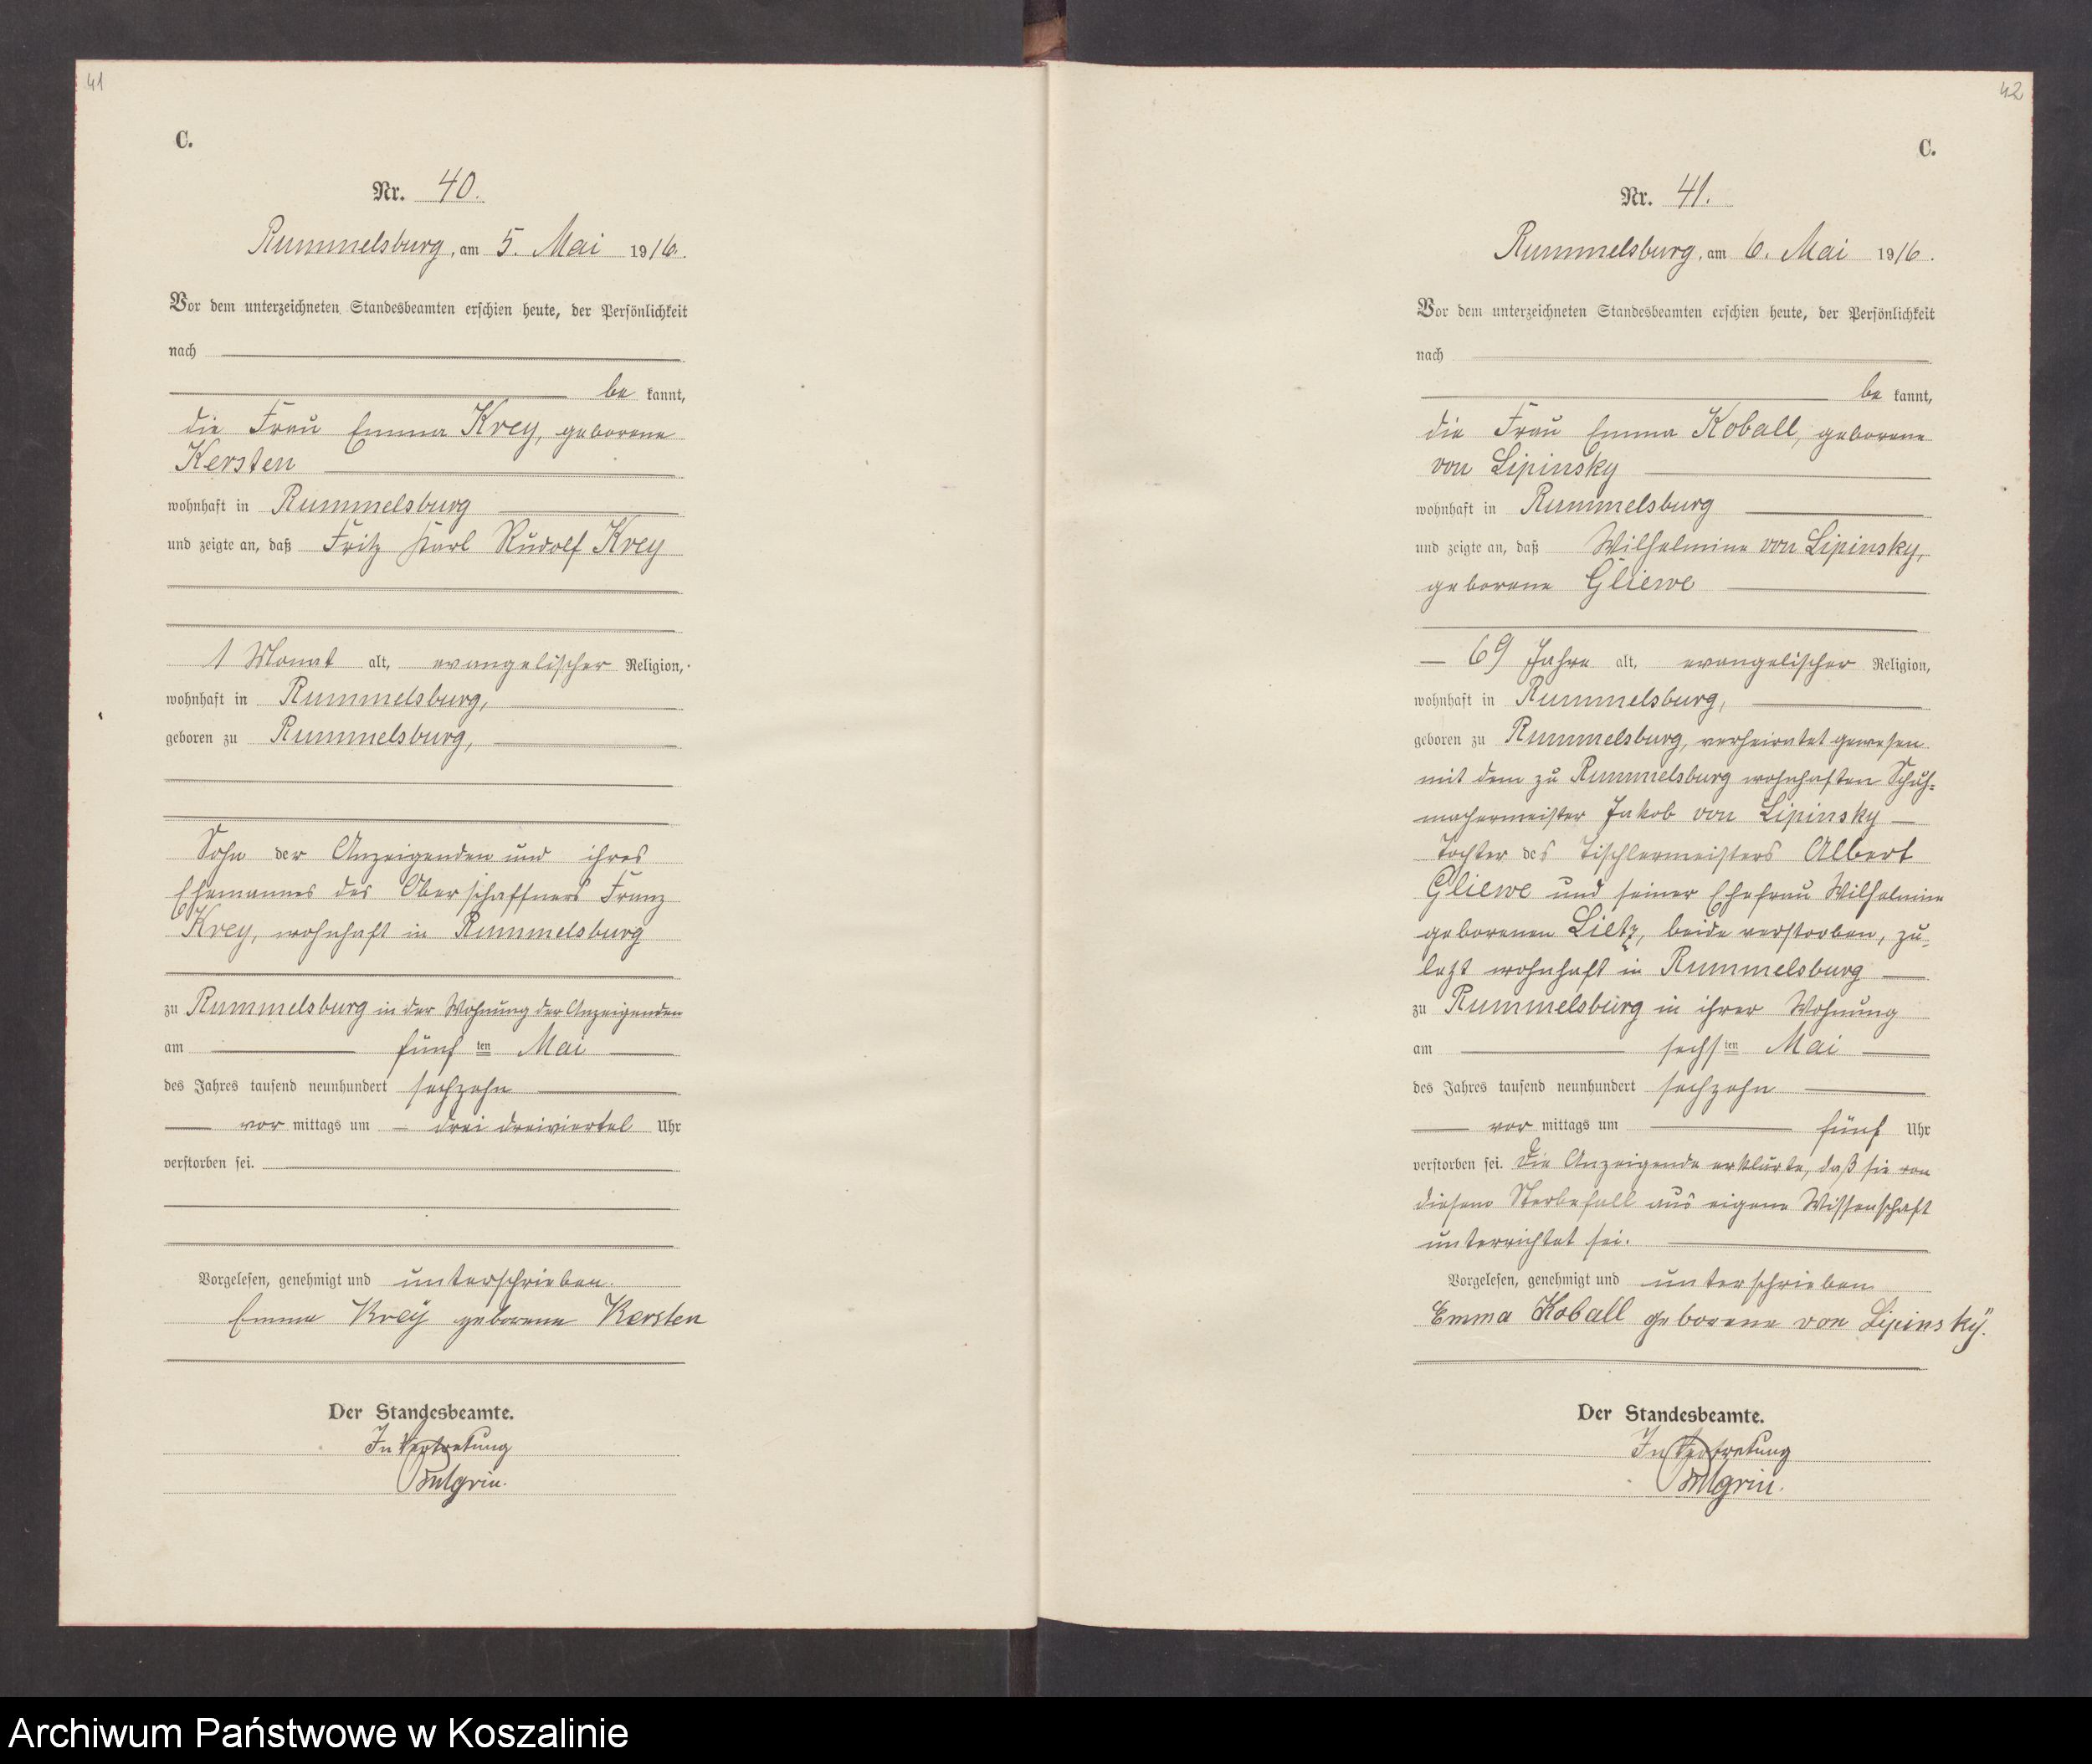 41
C.
Nr. 40.
Rummelsburg, am 5. Mai 1916.
Vor dem unterzeichneten Standesbeamten erschien heute, der Persönlichkeit
nach
be kannt,
die Frau Emma Krey, geborene
Kersten
wohnhaft in Rummelsburg
und zeigte an, daß Fritz Karl Rudolf Krey
1 Monat alt, evangelischer Religion,
wohnhaft in Rummelsburg,
geboren zu Rummelsburg,
Sohn der Anzeigenden und ihres
Ehemannes des Oberschaffners Franz
Krey, wohnhaft in Rummelsburg
zu Rummelsburg in der Wohnung der Anzeigenden
am fünf ten Mai
des Jahres tausend neunhundert sechzehn
vor mittags um drei dreiviertel Uhr
verstorben sei.
Vorgelesen, genehmigt und unterschrieben.
Emma Krey geborene Kersten
Der Standesbeamte.
In Vertretung
42
C.
Nr. 41.
Rummelsburg, am 6. Mai 1916.
Vor dem unterzeichneten Standesbeamten erschien heute, der Persönlichkeit
nach
be kannt,
die Frau Emma Koball, geborene
von Lipinsky
wohnhaft in Rummelsburg
und zeigte an, daß Wilhelmine von Lipinsky,
geborene Gliewe
69 Jahre alt, evangelischer Religion,
wohnhaft in Rummelsburg,
geboren zu Rummelsburg, verheiratet gewesen
mit dem zu Rummelsburg wohnhaften Schuh-
machermeister Jakob von Lipinsky
Tochter des Tischlermeisters Albert
Gliewe und seiner Ehefrau Wilhelmine
geborenen Lietz, beide verstorben, zu-
letzt wohnhaft in Rummelsburg
zu Rummelsburg in ihrer Wohnung
am sechs ten Mai
des Jahres tausend neunhundert sechzehn
vor mittags um fünf Uhr
verstorben sei. Die Anzeigende erklärte, daß sie von
diesem Sterbefall aus eigene Wissenschaft
unterrichtet sei.
Vorgelesen, genehmigt und unterschrieben
Emma Koball geborene von Lipinsky.
Der Standesbeamte.
In Vertretung
Archiwum Państwowe w Koszalinie